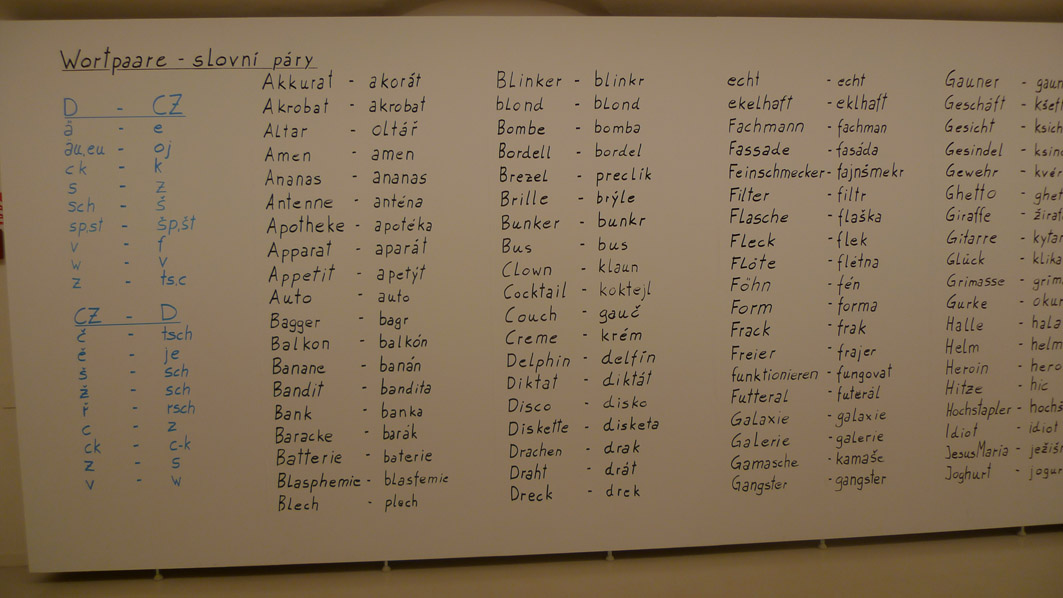 Wortpaare - slovní páry
D - CZ
ä - e
au,eu - oj
ck - k
s - z
sch - š
sp,st - šp,št
v - f
w - v
z - ts,c
CZ - D
č - tsch
ě - je
š - sch
ž - sch
ř - rsch
c - z
ck - c-k
z - s
v - w
Akkurat - akorát
Akrobat - akrobat
Altar - oltář
Amen - amen
Ananas - ananas
Antenne - anténa
Apotheke - apotéka
Apparat - aparát
Appetit - apetýt
Auto - auto
Bagger - bagr
Balkon - balkón
Banane - banán
Bandit - bandita
Bank - banka
Baracke - barák
Batterie - baterie
Blasphemie - blasfemie
Blech - plech
Blinker - blinkr
blond - blond
Bombe - bomba
Bordell - bordel
Brezel - preclík
Brille - brýle
Bunker - bunkr
Bus - bus
Clown - klaun
Cocktail - koktejl
Couch - gauč
Creme - krém
Delphin - delfín
Diktat - diktát
Disco - disko
Diskette - disketa
Drachen - drak
Draht - drát
Dreck - drek
echt - echt
ekelhaft - eklhaft
Fachmann - fachman
Fassade - fasáda
Feinschmecker - fajnšmekr
Filter - filtr
Flasche - flaška
Fleck - flek
Flöte - flétna
Föhn - fén
Form - forma
Frack - frak
Freier - frajer
funktionieren - fungovat
Futteral - futerál
Galaxie - galaxie
Galerie - galerie
Gamasche - kamaše
Gangster - gangster
Gauner - gaun
Geschäft - kšef
Gesicht - ksich
Gesindel - ksin
Gewehr - kvér
Ghetto - ghet
Giraffe - žiraf
Gitarre - kytar
Glück - klika
Grimasse - grim
Gurke - oku
Halle - hala
Helm - helm
Heroin - hero
Hitze - hic
Hochstapler - hochš
Idiot - idiot
JesusMaria - ježiš
Joghurt - jogur